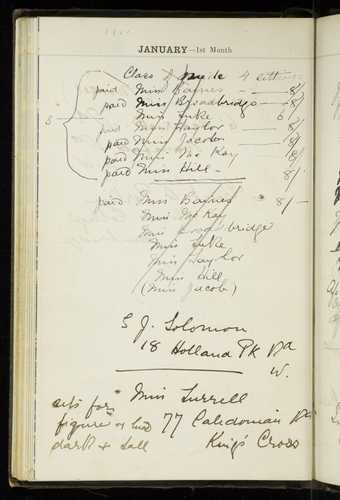 JANUARY—1st Month
Class of nude 4 sittings
paid Miss Barnes — 8/
paid Miss Broadbridge — 8/
Miss Tuke 6/
paid Miss Traylor — 8/
paid Miss Jacobs — 8/
paid Miss McKay 8/
paid Miss Hill — 8/-
5
paid Miss Barnes 8/-
Miss McKay
Miss Broadbridge
Miss Tuke
Miss Traylor
Miss Hill
(Miss Jacob)
S J. Solomon
18 Holland Pk Rd
W.
Miss Turrell
sits for
figure or head 77 Caledonian Rd
dark & tall King's Cross